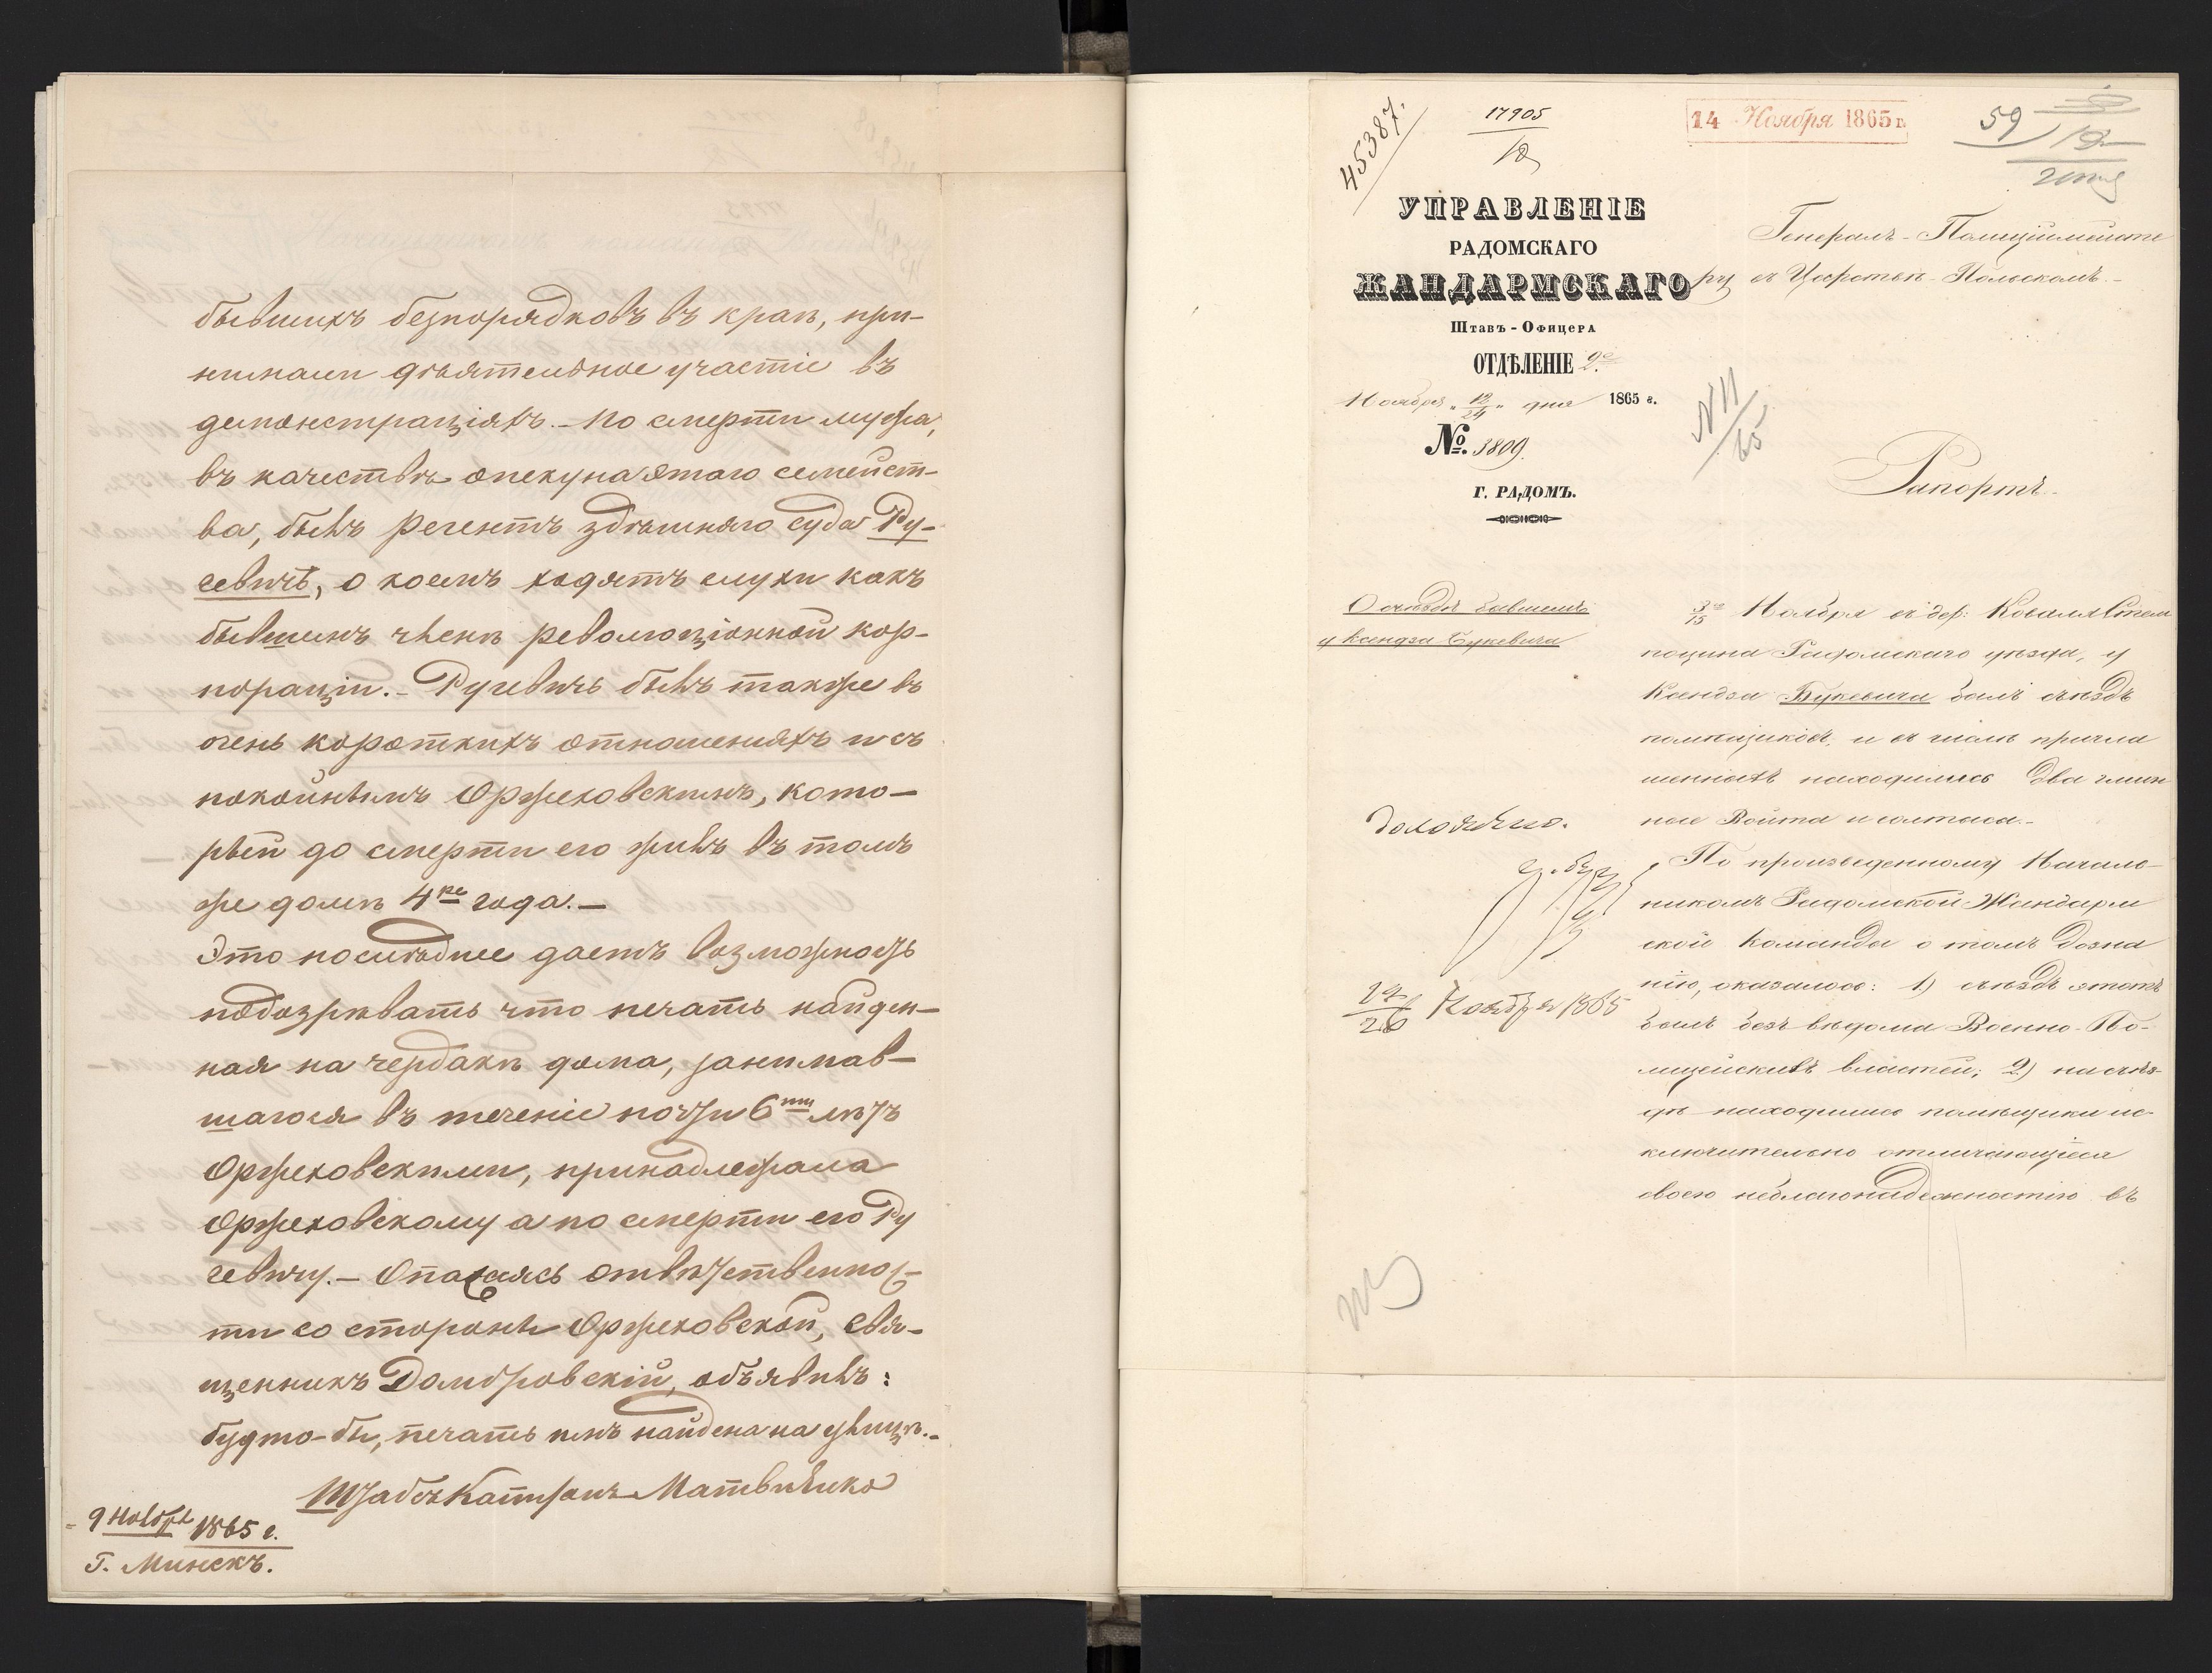 бывшихъ безпорядковъ въ краѣ, при-
нимали дѣятельное участіе въ
демонстраціяхъ. - По смерти мужа,
въ качествѣ опекуна этаго семейст-
ва, былъ регентъ здѣшняго суда Ру-
севичъ, о коемъ ходятъ слухи какъ
бывшимъ членѣ революціонной кор-
пораціи. - Русевичъ былъ также въ
очень короткихъ отношеніяхъ и съ
покойнымъ Оржеховскимъ, кото-
рый до смерти его жилъ въ томъ
же домѣ 4ре года. -
Это послѣднее даетъ возможность
подозрѣвать что печать найден-
ная на чердакѣ дома, занимав-
шагося въ теченіе почти 6ти лѣтъ
Оржеховскими, принадлежала
Оржеховскому а по смерти его Ру
севичу. - Опасаясь отвѣтственнос-
ти со стороны Оржеховской, свя-
щенникъ Домбровскій, объявилъ:
будто-бы, печать имъ найдена на улицѣ. -
Штабсъ Капитанъ Матвѣенко
9 Ноября 1865 г.
Г. Минскъ.
45387.
17905
14 Ноября 1865 г.
59
УПРАВЛЕНІЕ
РАДОМСКАГО
ЖАНДАРМСКАГО
Штабъ-Офицера
ОТДѢЛЕНІЕ 2е
Ноября „12/24„ дня 1865 г.
№. 3809.
Г. РАДОМЪ.
Генералъ-Полиціймейсте
ру въ Царствѣ Польскомъ. -
N 11/65
Рапортъ.
О съѣздѣ бывшемъ
у Ксендза Букевича
3го/15 Ноября въ дер: Коваля Стем
поцина Радомскаго уѣзда, у
Ксендза Букевича былъ съѣздъ
помѣщиковъ, и въ числѣ пригла
шенныхъ находились два гмин
ные Войта и солтыса. -
По произведенному Началь-
никомъ Радомской Жандарм
ской Команды о томъ дозна
нію, оказалось: 1) съѣздъ этотъ
былъ безъ вѣдома Военно-По-
лицейскихъ властей; 2) на съѣз-
дѣ находились помѣщики ис-
ключительно отличающіеся
своею неблагонадежностію въ
Доложено.
14/26 Ноября 1865